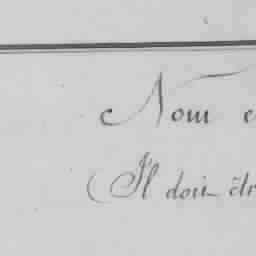 Nom e
(Il doit êtr